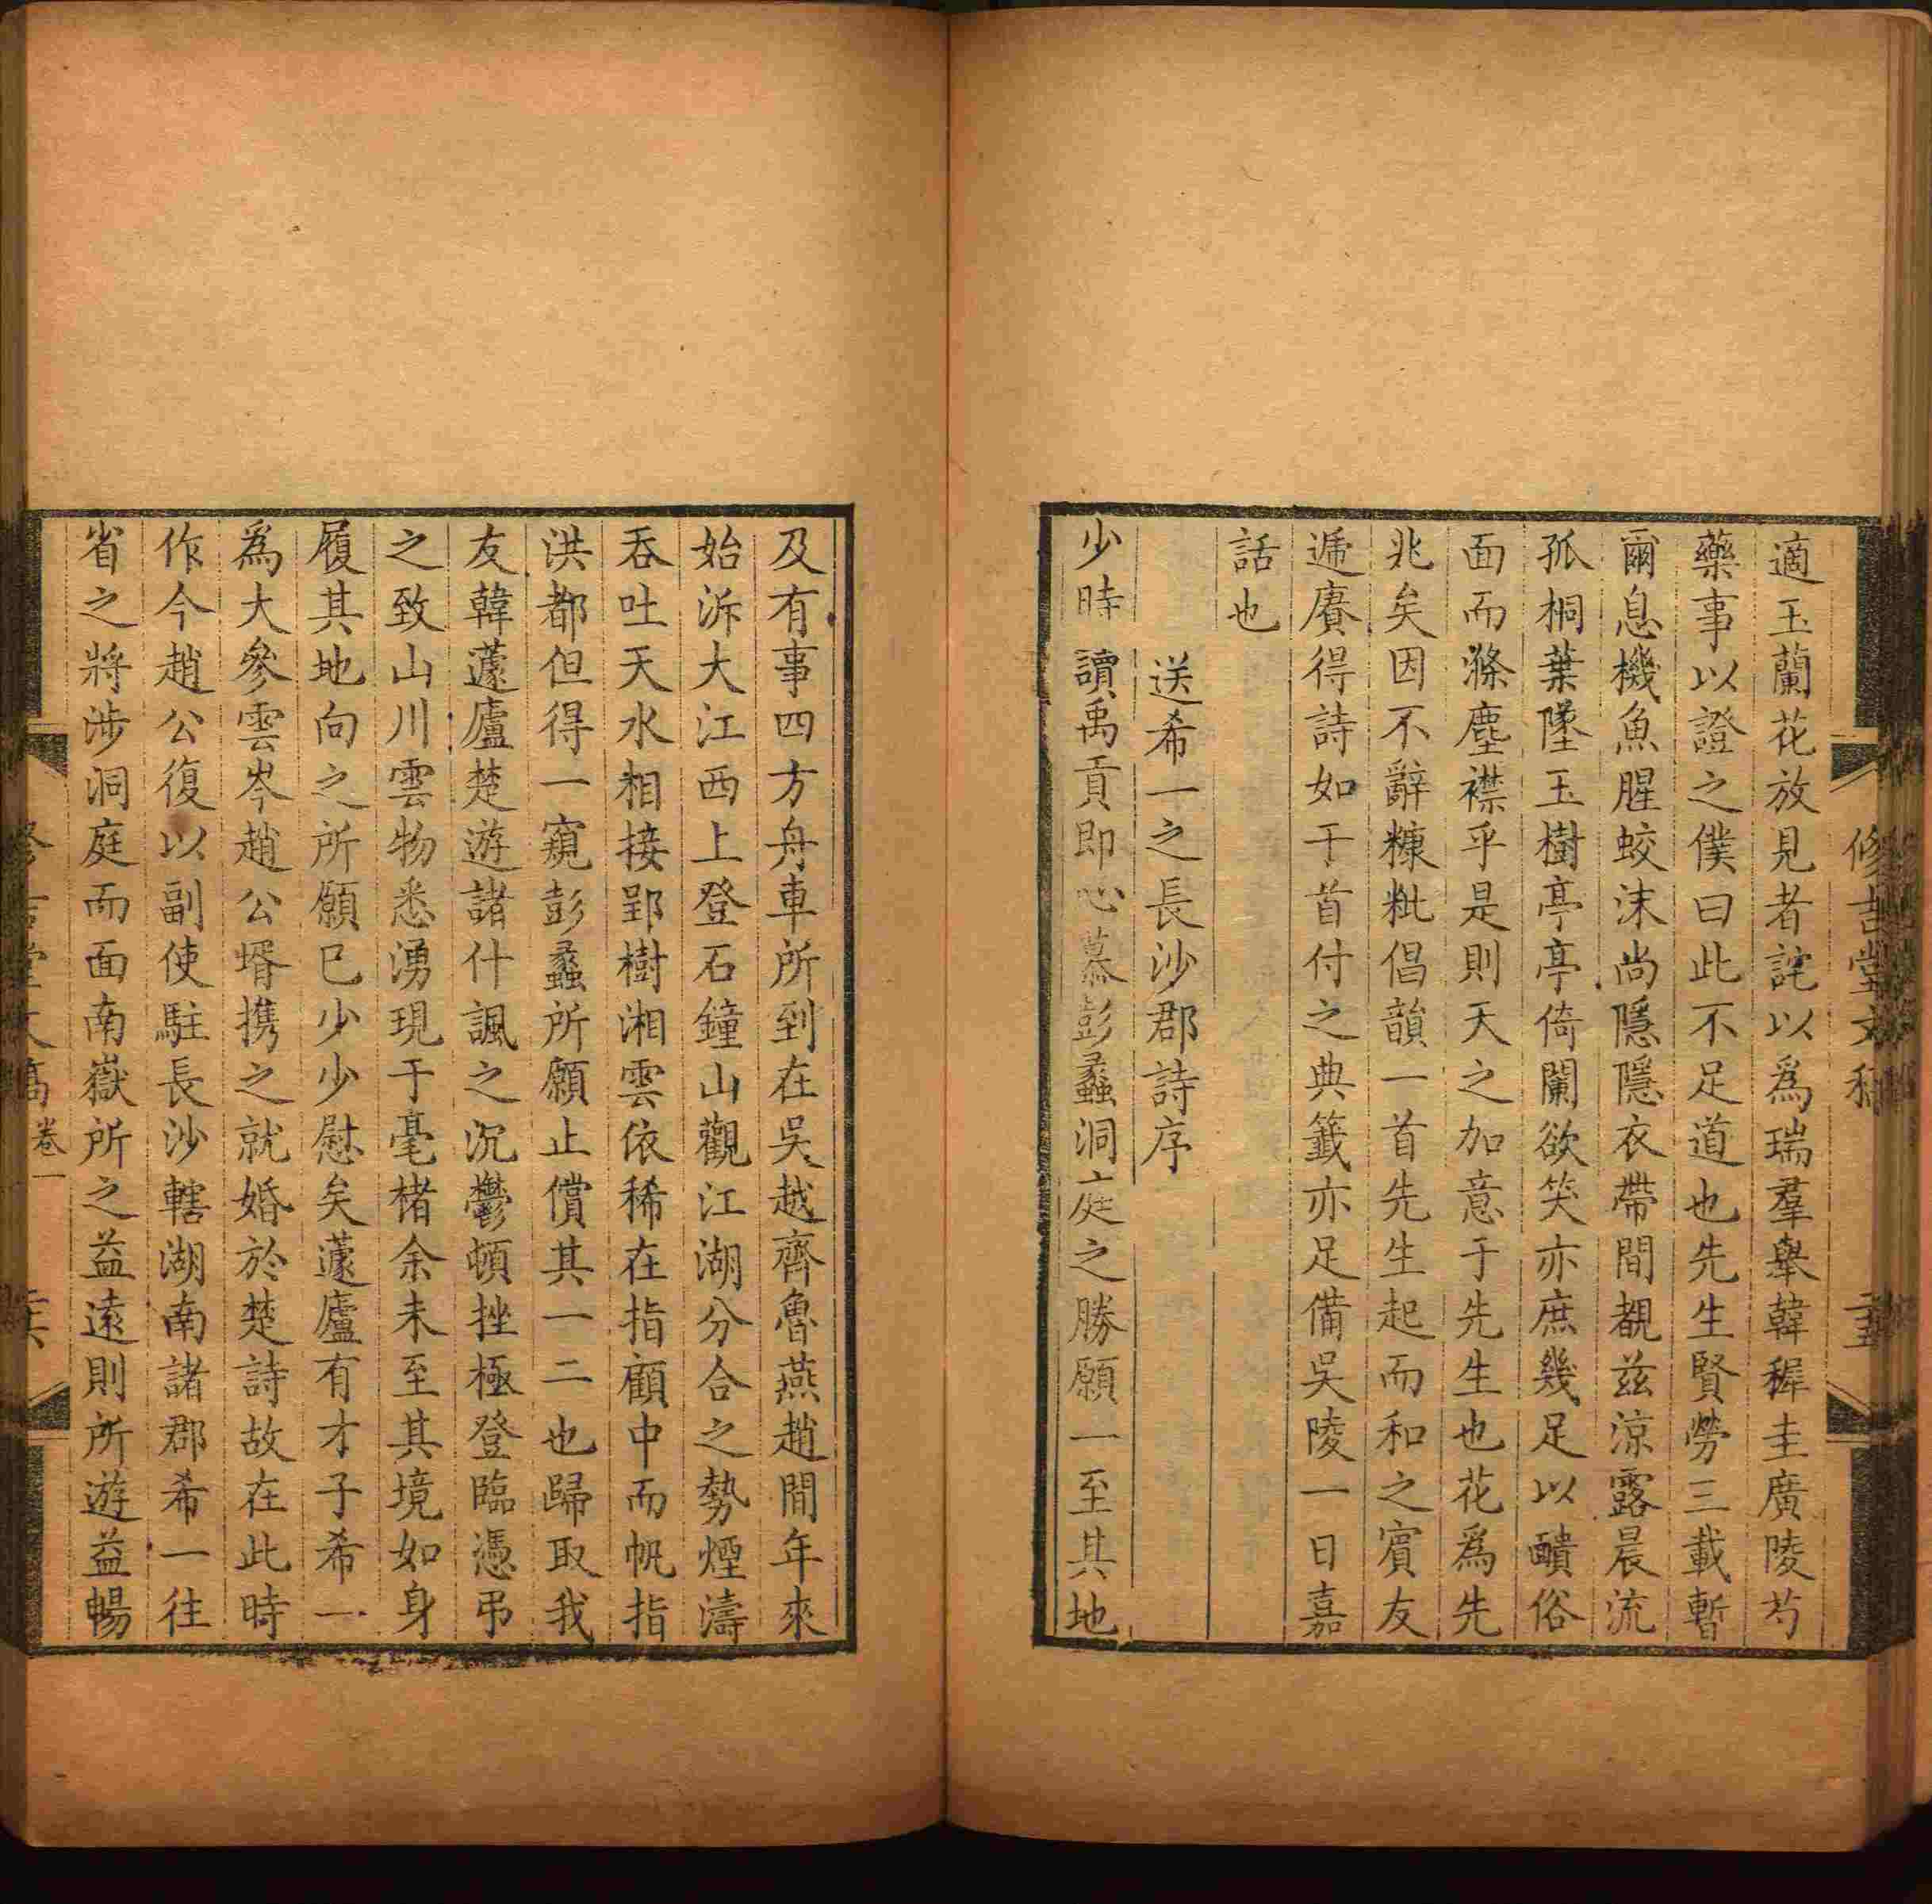 修吉堂文稿
適玉蘭花放見者詫以爲瑞羣舉韓穉圭廣陵芍
藥事以證之僕曰此不足道也先生賢勞三載暫
爾息機魚腥蛟沫尚隱隱衣帶間覩茲涼露晨流
孤桐葉墜玉樹亭亭倚闌欲笑亦庶幾足以靧俗
面而滌塵襟乎是則天之加意于先生也花爲先
兆矣因不辭糠粃倡韻一首先生起而和之賓友
遞賡得詩如干首付之典籤亦足備吳陵一日嘉
話也
送希一之長沙郡詩序
少時讀禹貢即心慕彭蠡洞庭之勝願一至其地
及有事四方舟車所到在吳越齊魯燕趙間年來
始泝大江西上登石鐘山觀江湖分合之勢煙濤
吞吐天水相接郢樹湘雲依稀在指顧中而帆指
洪都但得一窺彭蠡所願止償其一二也歸取我
友韓蘧廬楚遊諸什諷之沉鬱頓挫極登臨憑弔
之致山川雲物悉湧現于毫楮余未至其境如身
履其地向之所願已少少慰矣蘧廬有才子希一
爲大參雲岑趙公壻携之就婚於楚詩故在此時
作今趙公復以副使駐長沙轄湖南諸郡希一往
省之將涉洞庭而面南嶽所之益遠則所遊益暢
卷一